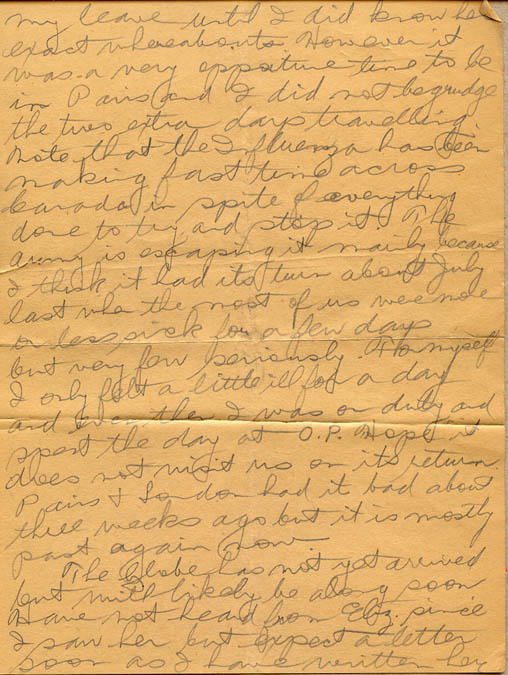 my leave until I did know her
exact whereabouts. However it
was a very opportune time to be
in Paris and I did not begrudge
the two extra days travelling.
Note that the Influenza has been
making fast time across
Canada in spite of everything
done to try and stop it. The
army is escaping it mainly because
I think it had its turn about July
last whe the most of us wee more
or less sick for a few days
but very few seriously. For myself
I only felt a little ill for a day
and even then I was on duty and
spent the day at O.P. Hope it
does not visit us on its return.
Paris & London had it bad about
three weeks ago but it is mostly
past again now
The Globe has not yet arrived
but will likely be along soon
Have not heard from since
I saw her but expect a letter
soon as I have written her